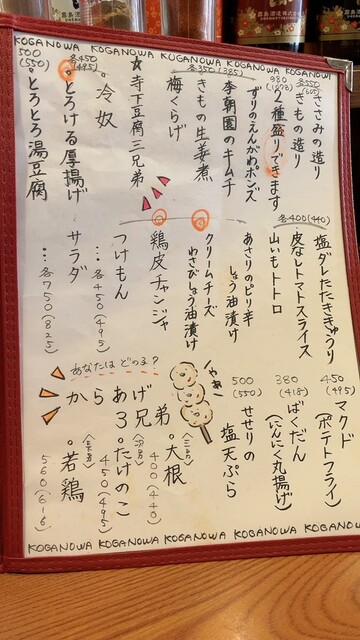 KOGANOWA KOGANOWA KOGANOWA KOGANOWA KOGANOWA
各550
(605)
ささみの造り
きもの造り
980
(1078)
2種盛りできます
ずりのえんがわポンズ
各350(385)
李朝園のキムチ
きもの生姜煮
梅くらげ
☆寺下豆腐三兄弟
。冷奴
各450
(495)
。とろける厚揚げ
500
(550)
。とろとろ湯豆腐
各400(440)
塩ダレたたききゅうり
皮なしトマトスライス
山いもトトロ
あさりのピリ辛
しょう油漬け
クリームチーズ
わさびしょう油漬け
鶏皮チャンジャ
つけもん
…各450(495)
サラダ
…各750(825)
450
(495)
マクド
(ポテトフライ)
380
(418)
ばくだん
(にんにく丸揚げ)
500
(550)
せせりの
塩天ぷら
やぁ~
あなたは どのコ?
からあげ
3兄弟
〈三男〉
。大根
400(440)
〈次男〉
。たけのこ
450(495)
〈長男〉
。若鶏
560(616)
KOGANOWA KOGANOWA KOGANOWA KOGANOWA KOGANOWA